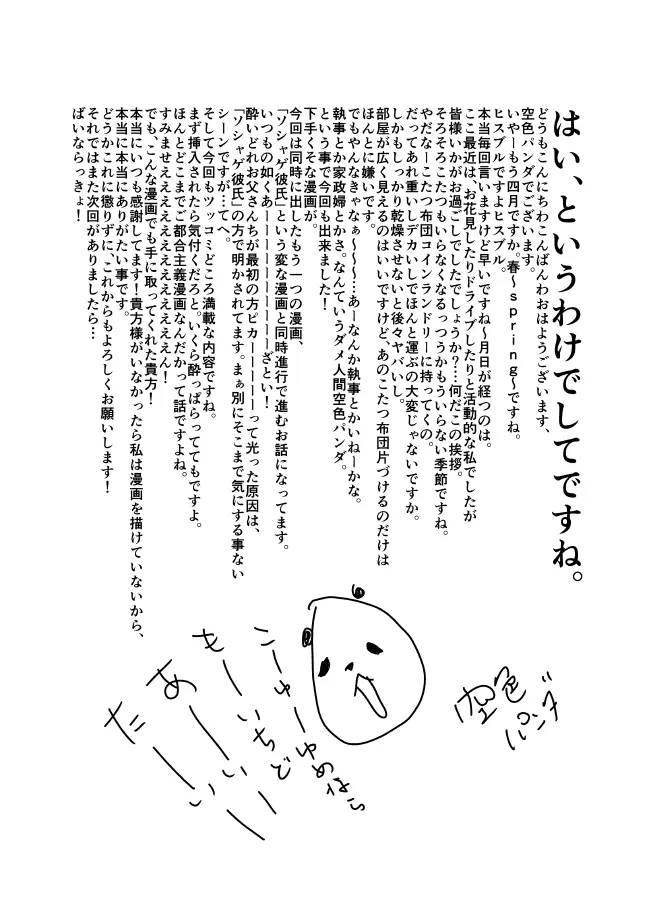 はい、というわけでしてですね。
どうもこんにちわこんばんわおはようございます、
空色パンダでございます。
いやーもう四月ですか。春～ｓｐｒｉｎｇ～ですね。
ヒスブルですよヒスブル。
本当毎回言いますけど早いですね～月日が経つのは。
ここ最近は、お花見したりドライブしたりと活動的な私でしたが
皆様いかがお過ごしでしたでしょうか？…何だこの挨拶。
そろそろこたつもいらなくなるっつうかもういらない季節ですね。
やだなーこたつ布団コインランドリーに持ってくの。
だってあれ重いしデカいしでほんと運ぶの大変じゃないですか。
しかもしっかり乾燥させないと後々ヤバいし。
部屋が広く見えるのはいいですけど、あのこたつ布団片づけるのだけは
ほんとに嫌いです。
でもやんなきゃなぁ～～～…あーなんか執事とかいねーかな。
執事とか家政婦とかさ。なんていうダメ人間空色パンダ。
という事で今回も出来ました！
下手くそな漫画が。
今回は同時に出したもう一つの漫画、
「ソシャゲ彼氏」という変な漫画と同時進行で進むお話になってます。
いつもの如くあーーーーーーーーーざとい！
酔いどれお父さんちが最初の方ピカーーーーーって光った原因は、
「ソシャゲ彼氏」の方で明かされてます。まぁ別にそこまで気にする事ない
シーンですが…てへ。
そして今回もツッコミどころ満載な内容ですね。
まず挿入されたら気付くだろと。いくら酔っぱらっててもですよ。
ほんとどこまでご都合主義漫画なんだかって話ですよね。
すみませええええええええええええん！
でも、こんな漫画でも手に取ってくれた貴方！
本当にいつも感謝してます！貴方様がいなかったら私は漫画を描けていないから、
本当に本当にありがたい事です。
どうかこれに懲りずに、これからもよろしくお願いします！
それではまた次回がありましたら…
ばいならっきょ！
空色
パンダ
こーゆーゆめなら
もーいちど
あーいい
たーい